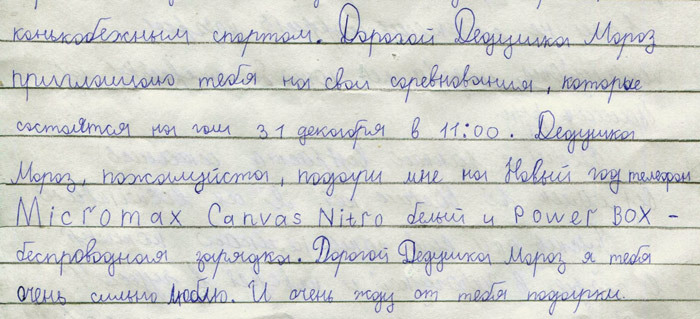 конькобежным спортом. Дорогой Дедушка Мороз
приглошаю тебя на свои соревнования, которые
состоятся на гом 31 декабря в 11:00. Дедушка
Мороз, пожалуйста, подари мне на Новый год телефон
Micromax Canvas Nitro белый и Power BOX -
беспроводная зарядка. Дорогой Дедушка Мороз я тебя
очень сильно люблю. И очень жду от тебя подарки.